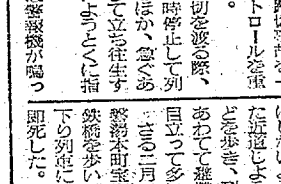 トロールを重
切を渡る際、
時停止して列
ほか、急ぐあ
て立ち往生す
ようとくに指
警報機が鳴っ
た近道しよ
どを歩き、
あわてて避難
目立って多
さる二月
磐湯本町宝
鉄橋を歩い
下り列車に
即死した。